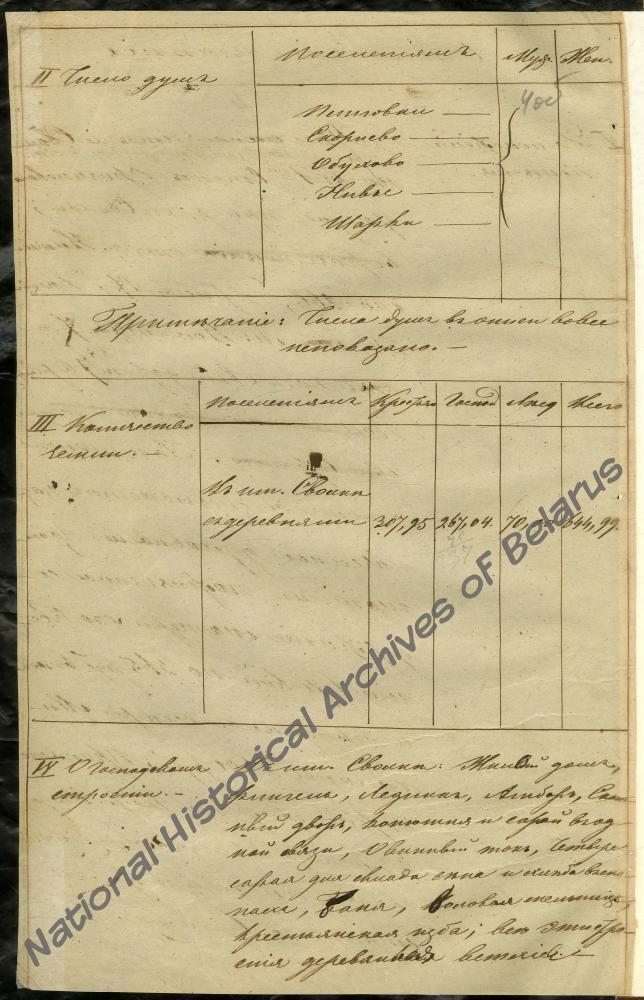 II Число душъ
Поселенiямъ Муж. Жен.
Петровки
Скориево
Обухово
Нивье
Шарки
Примѣчанiе: Числа душъ въ описи вовсе
непоказано. —
III Количество
земли. —
Поселенiямъ Крестьян Господ Лѣсу Всего
Въ им. Свотки
съ деревнями 307,95 267,04. 70, 644,99
IV О господскомъ
строенiи. —
Въ им. Свотки: Жилой домъ,
Флигель, Ледникъ, Амбаръ, Скот
ный дворъ, конюшня и сарай въ од
ной связи, Овинный токъ, Четыре
сарая для склада сѣна и хлѣба въ
Баня, мельница,
крестьянская изба; все это стро
енiя деревянныя ветхiя. —
National Historical Archives of Belarus